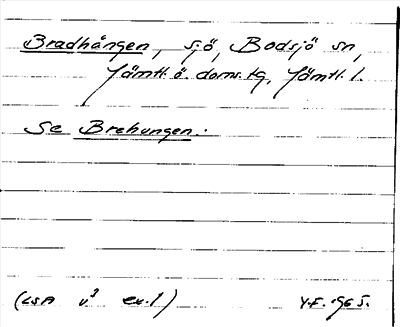 Bradhången, sjö, Bodsjö sn,
Jämtl. ö. doms. tg, Jämtl. l.
Se Brehungen.
(LSA v³ ex. 1) Y.F. 1965.